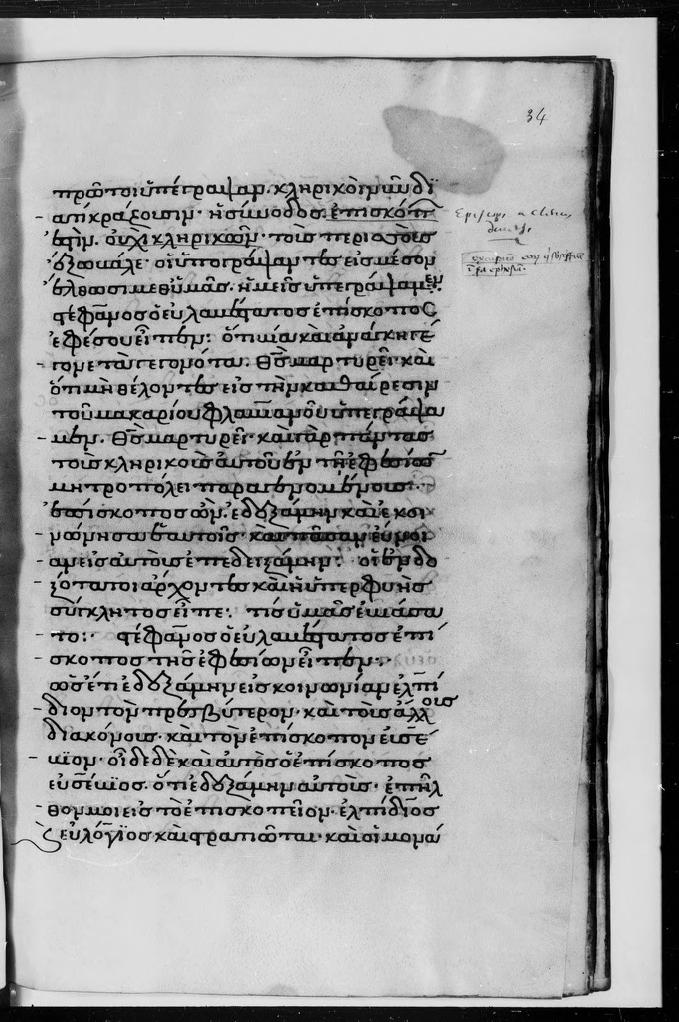 34
πρῶτοι ὑπέγραψαν. κληρικοὶ νῦν δι
ατί κράζουσιν· ἡ σύνοδος ἐπισκόπων
ἐστὶν. οὐχὶ κληρικῶν· τοὺς περισσοὺς
ἔξω βάλε· οἱ ὑπογράψαντες εἰς μέσον
ἐλθωσι μεθ' ὑμᾶς. ἡμεῖς ὑπεγράψαμεν
στέφανος ὁ εὐλαβέστατος ἐπίσκοπος
ἐφέσου εἶπεν: ὅτι
τομεν τὰ γεγονότα. θς μαρτυρεῖ καὶ
ὅτι μὴ θέλοντες εἰς τὴν καθαίρεσιν
τοῦ μακαρίου φλαυιανοῦ ὑπεγράψα
μεν. θς μαρτυρεῖ· καὶ γὰρ πάντας
τοὺς κληρικοὺς αὐτοῦ ἐν τῇ ἐφεσίων
μητροπόλει παραγενομένους·
ἐπίσκοπος ὢν. ἐδεξάμην καὶ ἐκοι
νώνησα αὐτοῖς· καὶ πᾶσαν εὔνοι
αν εἰς αὐτοὺς ἐπεδειξάμην: οἱ ἐνδο
ξότατοι ἄρχοντες καὶ ἡ ὑπερφυὴς
σύγκλητος εἶπε: τίς ὑμᾶς ἐβιάσα
το: στέφανος ὁ εὐλαβέστατος ἐπί
σκοπος τῆς ἐφεσίων εἶπεν:
ὡς ἐπεδεξάμην εἰς κοινωνίαν ἐλπί
διον τὸν πρεσβύτερον· καὶ τοὺς ἄλλους
διακόνους· καὶ τὸν ἐπίσκοπον εὐσέ
βιον· οἶδε δὲ καὶ αὐτὸς ὁ ἐπίσκοπος
εὐσέβιος· ὅτι ἐδεξάμην αὐτούς· ἐπῆλ
θον μοι εἰς τὸ ἐπισκοπεῖον· ἐλπίδιος
εὐλόγιος καὶ στρατιῶται· καὶ οἱ μονά